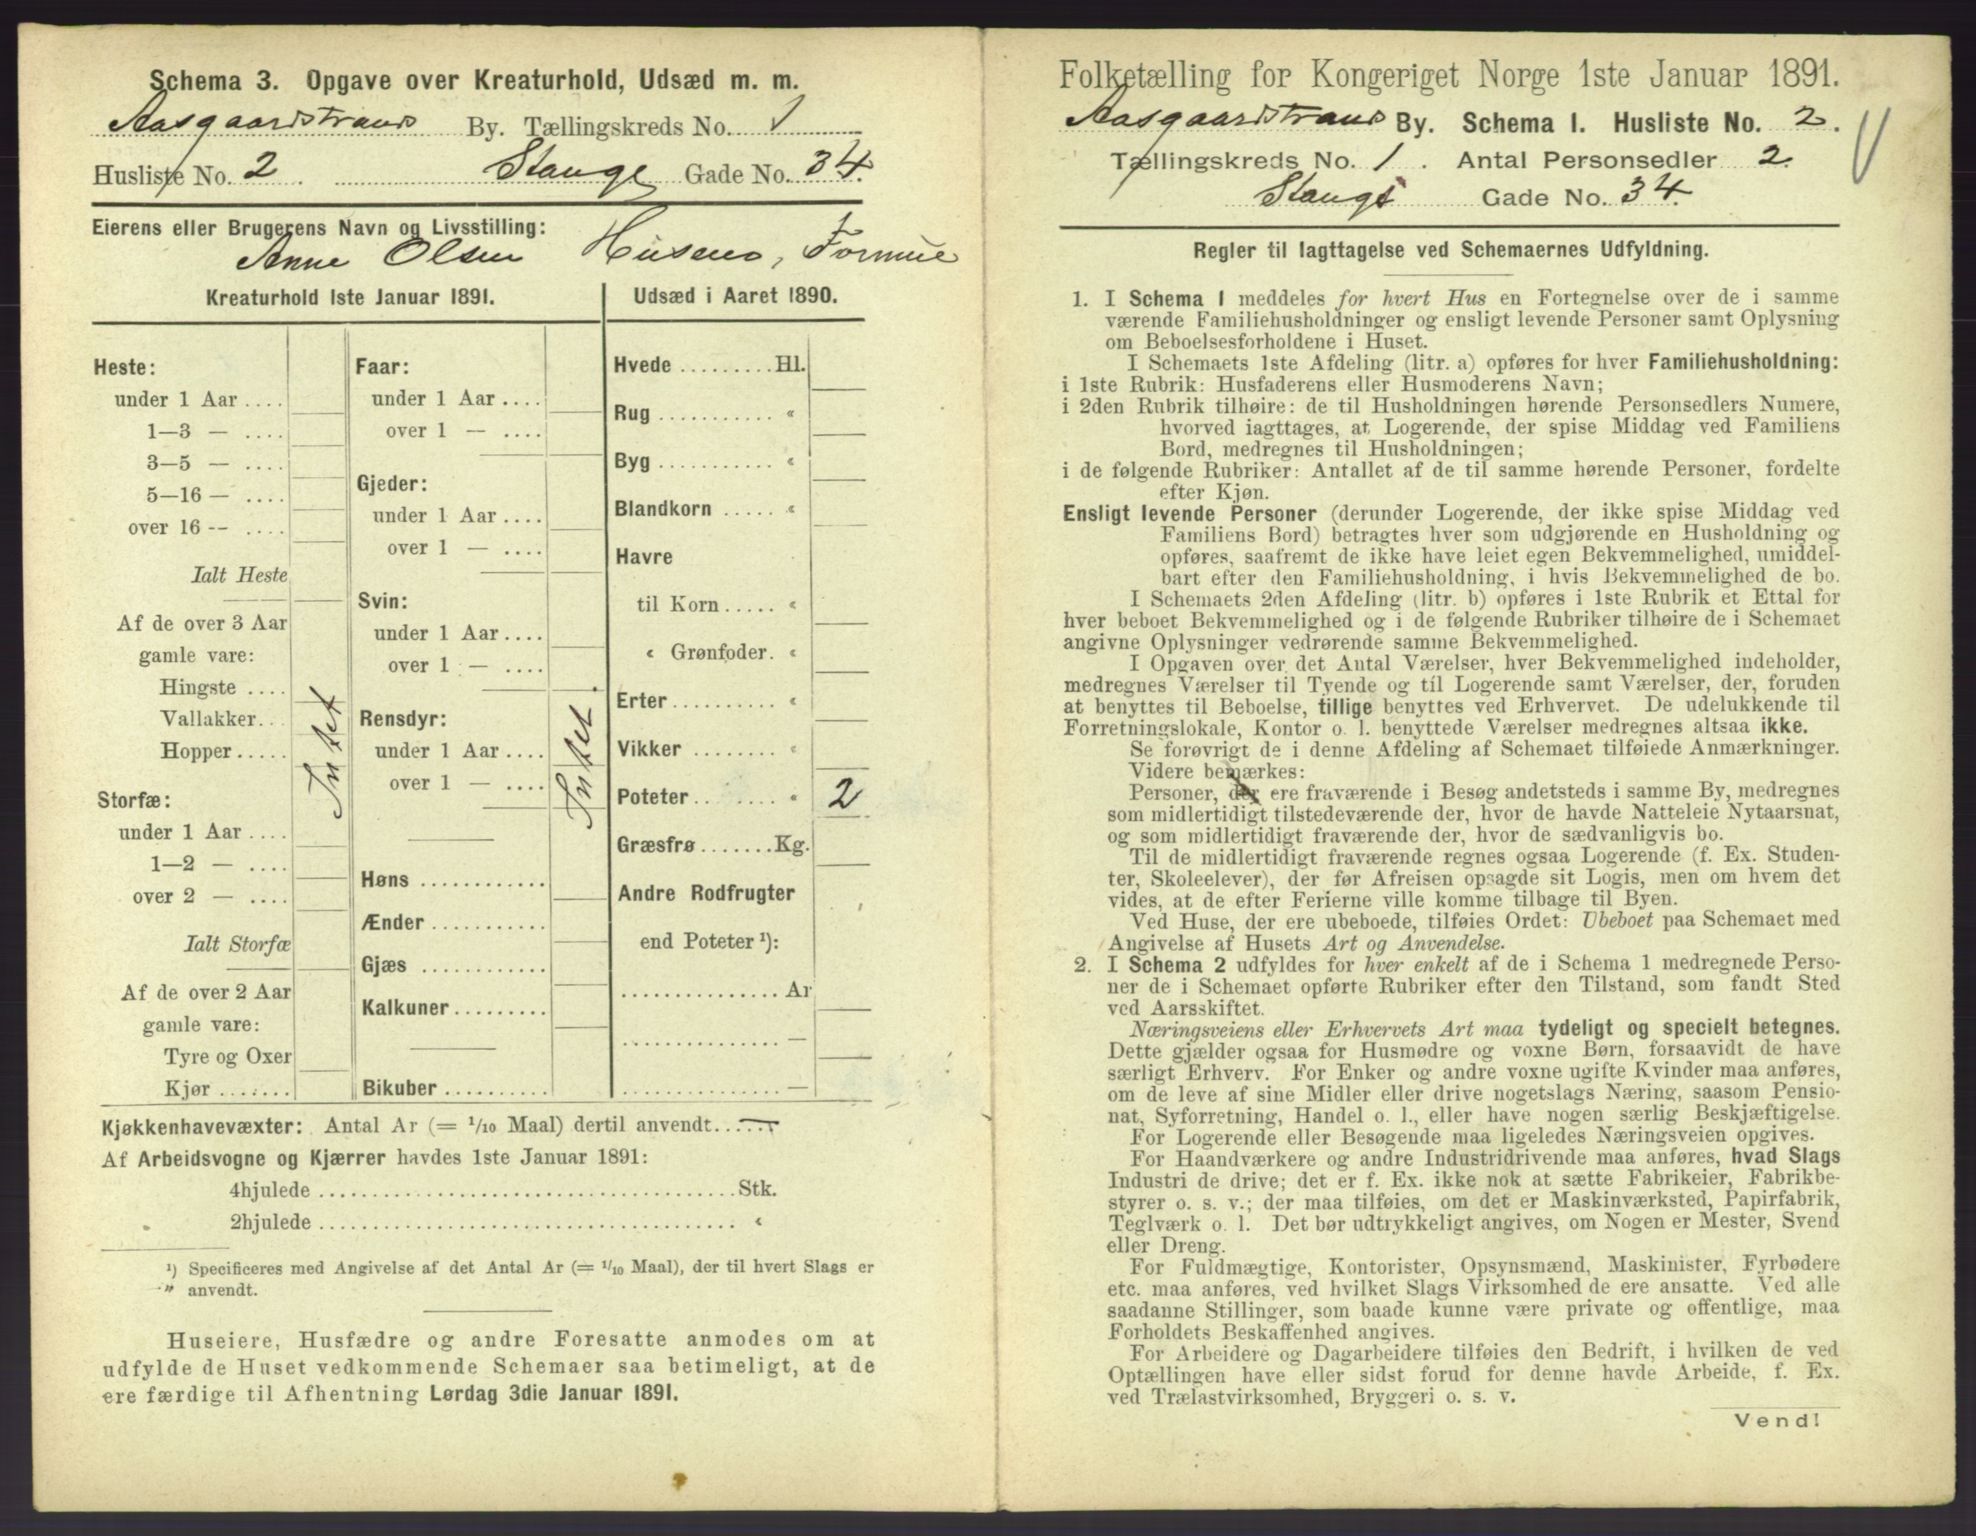 Schema 3. Opgave over Kreaturhold, Udsæd m. m.
Aasgaardstrands By. Tællingskreds No. 1
Husliste No. 2. Stange Gade No. 34.
Eierens eller Brugerens Navn og Livsstilling:
Anne Olsen Huseno, Formue
Kreaturhold 1ste Januar 1891.
Heste:
under 1 Aar ....
1—3 — ....
3—5 — ....
5—16 — ....
over 16 -- ....
Ialt Heste
Af de over 3 Aar
gamle vare:
Hingste ....
Vallakker...
Hopper ....
Storfæ:
under 1 Aar ....
1—2 — ....
over 2 — ....
Ialt Storfæ
Af de over 2 Aar
gamle vare:
Tyre og Oxer
Kjør .......
Intet
Faar:
under 1 Aar ....
over 1 — ....
Gjeder:
under 1 Aar ....
over 1 — ....
Svin:
under 1 Aar ....
over 1 — ....
Rensdyr:
under 1 Aar ....
over 1 — ....
Høns ............
Ænder ...........
Gjæs ............
Kalkuner.........
Bikuber ..........
Intet.
Udsæd i Aaret 1890.
Hvede .........Hl.
Rug ........... "
Byg ........... "
Blandkorn ..... "
Havre
til Korn ..... "
" Grønfoder. "
Erter.......... "
Vikker ........ "
Poteter ....... " 2
Græsfrø.......Kg.
Andre Rodfrugter
end Poteter ¹):
...............Ar
............... —
............... —
Kjøkkenhavevæxter: Antal Ar (= 1/10 Maal) dertil anvendt.. —
Af Arbeidsvogne og Kjærrer havdes 1ste Januar 1891:
4hjulede ........................................Stk.
2hjulede ........................................ "
¹) Specificeres med Angivelse af det Antal Ar (= 1/10 Maal), der til hvert Slags er
anvendt.
Huseiere, Husfædre og andre Foresatte anmodes om at
udfylde de Huset vedkommende Schemaer saa betimeligt, at de
ere færdige til Afhentning Lørdag 3die Januar 1891.
Folketælling for Kongeriget Norge 1ste Januar 1891.
Aasgaardstrands By. Schema I. Husliste No. 2.
Tællingskreds No. 1. Antal Personsedler 2.
Stangs Gade No. 34.
Regler til Iagttagelse ved Schemaernes Udfyldning.
1. I Schema 1 meddeles for hvert Hus en Fortegnelse over de i samme
værende Familiehusholdninger og ensligt levende Personer samt Oplysning
om Beboelsesforholdene i Huset.
I Schemaets 1ste Afdeling (litr. a) opføres for hver Familiehusholdning:
i 1ste Rubrik: Husfaderens eller Husmoderens Navn;
i 2den Rubrik tilhøire: de til Husholdningen hørende Personsedlers Numere,
hvorved iagttages, at Logerende, der spise Middag ved Familiens
Bord, medregnes til Husholdningen;
i de følgende Rubriker: Antallet af de til samme hørende Personer, fordelte
efter Kjøn.
Ensligt levende Personer (derunder Logerende, der ikke spise Middag ved
Familiens Bord) betragtes hver som udgjørende en Husholdning og
opføres, saafremt de ikke have leiet egen Bekvemmelighed, umiddel-
bart efter den Familiehusholdning, i hvis Bekvemmelighed de bo.
I Schemaets 2den Afdeling (litr. b) opføres i 1ste Rubrik et Ettal for
hver beboet Bekvemmelighed og i de følgende Rubriker tilhøire de i Schemaet
angivne Oplysninger vedrørende samme Bekvemmelighed.
I Opgaven over det Antal Værelser, hver Bekvemmelighed indeholder,
medregnes Værelser til Tyende og til Logerende samt Værelser, der, foruden
at benyttes til Beboelse, tillige benyttes ved Erhvervet. De udelukkende til
Forretningslokale, Kontor o. l. benyttede Værelser medregnes altsaa ikke.
Se forøvrigt de i denne Afdeling af Schemaet tilføiede Anmærkninger.
Videre bemærkes:
Personer, der ere fraværende i Besøg andetsteds i samme By, medregnes
som midlertidigt tilstedeværende der, hvor de havde Natteleie Nytaarsnat,
og som midlertidigt fraværende der, hvor de sædvanligvis bo.
Til de midlertidigt fraværende regnes ogsaa Logerende (f. Ex. Studen-
ter, Skoleelever), der før Afreisen opsagde sit Logis, men om hvem det
vides, at de efter Ferierne ville komme tilbage til Byen.
Ved Huse, der ere ubeboede, tilføies Ordet: Ubeboet paa Schemaet med
Angivelse af Husets Art og Anvendelse.
2. I Schema 2 udfyldes for hver enkelt af de i Schema 1 medregnede Perso-
ner de i Schemaet opførte Rubriker efter den Tilstand, som fandt Sted
ved Aarsskiftet.
Næringsveiens eller Erhvervets Art maa tydeligt og specielt betegnes.
Dette gjælder ogsaa for Husmødre og voxne Børn, forsaavidt de have
særligt Erhverv. For Enker og andre voxne ugifte Kvinder maa anføres,
om de leve af sine Midler eller drive nogetslags Næring, saasom Pensio-
nat, Syforretning, Handel o. l., eller have nogen særlig Beskjæftigelse.
For Logerende eller Besøgende maa ligeledes Næringsveien opgives.
For Haandværkere og andre Industridrivende maa anføres, hvad Slags
Industri de drive; det er f. Ex. ikke nok at sætte Fabrikeier, Fabrikbe-
styrer o. s. v.; der maa tilføies, om det er Maskinværksted, Papirfabrik,
Teglværk o. l. Det bør udtrykkeligt angives, om Nogen er Mester, Svend
eller Dreng.
For Fuldmægtige, Kontorister, Opsynsmænd, Maskinister, Fyrbødere
etc. maa anføres, ved hvilket Slags Virksomhed de ere ansatte. Ved alle
saadanne Stillinger, som baade kunne være private og offentlige, maa
Forholdets Beskaffenhed angives.
For Arbeidere og Dagarbeidere tilføies den Bedrift, i hvilken de ved
Optællingen have eller sidst forud for denne havde Arbeide, f. Ex.
ved Trælastvirksomhed, Bryggeri o. s. v.
Vend!